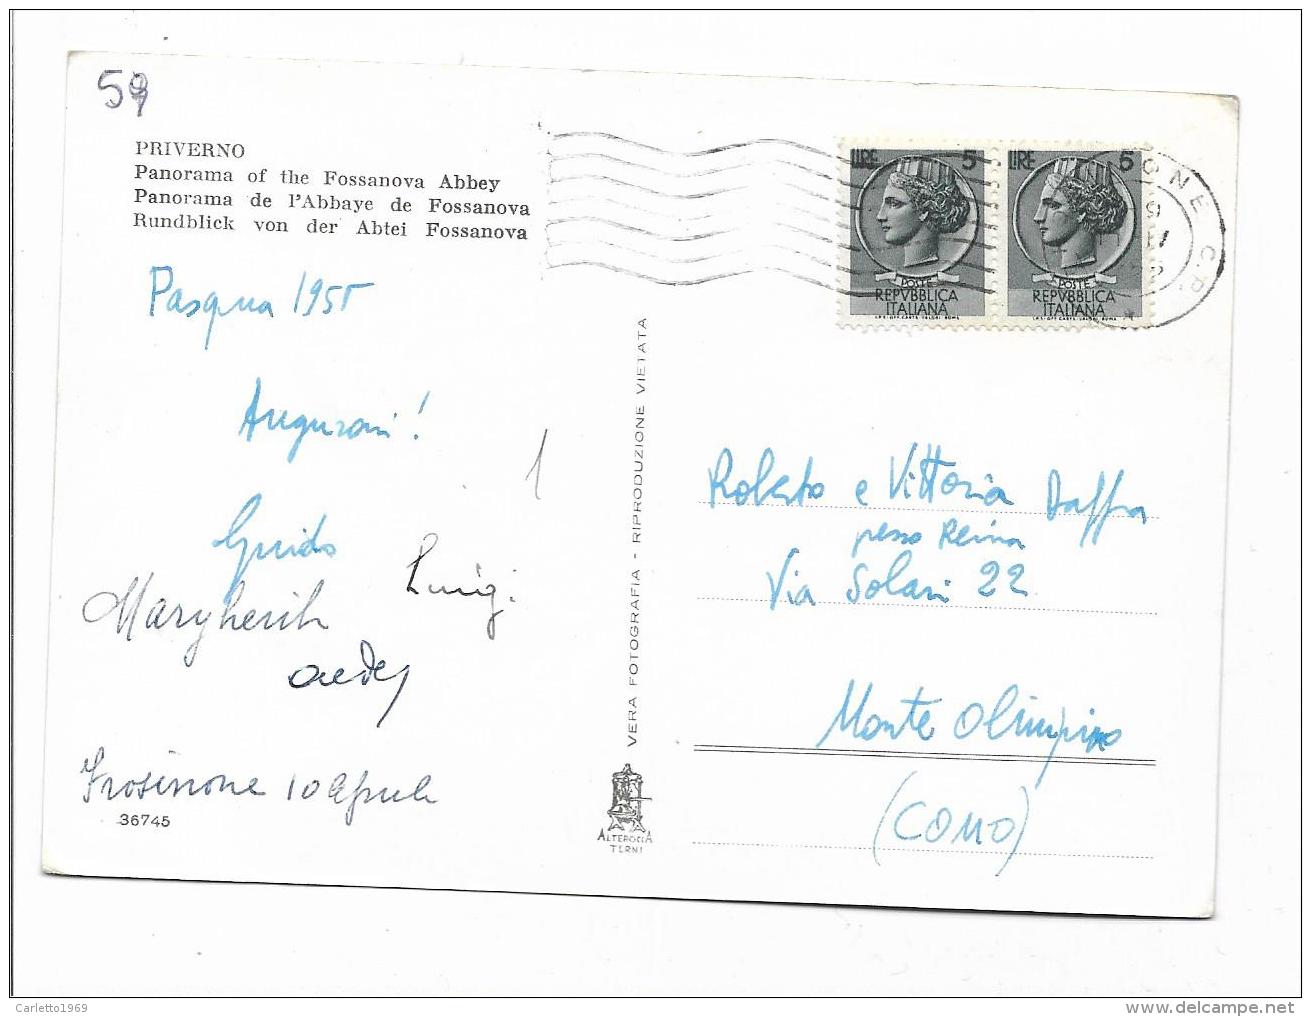 59
PRIVERNO
Panorama of the Fossanova Abbey
Panorama de l'Abbaye de Fossanova
Rundblick von der Abtei Fossanova
Pasqua 1955
Auguroni!
1
Guido
Luigi
Margherita
Frosinone 10 Aprile
36745
VERA FOTOGRAFIA - RIPRODUZIONE VIETATA
ALTEROCCA
TERNI
LIRE 5
POSTE
REPVBBLICA
ITALIANA
LIRE 5
POSTE
REPVBBLICA
ITALIANA
ONE C.P.
Roberto e Vittoria Daffra
presso Reina
Via Solari 22
Monte Olimpino
(COMO)
Carletto1969
www.delcampe.net